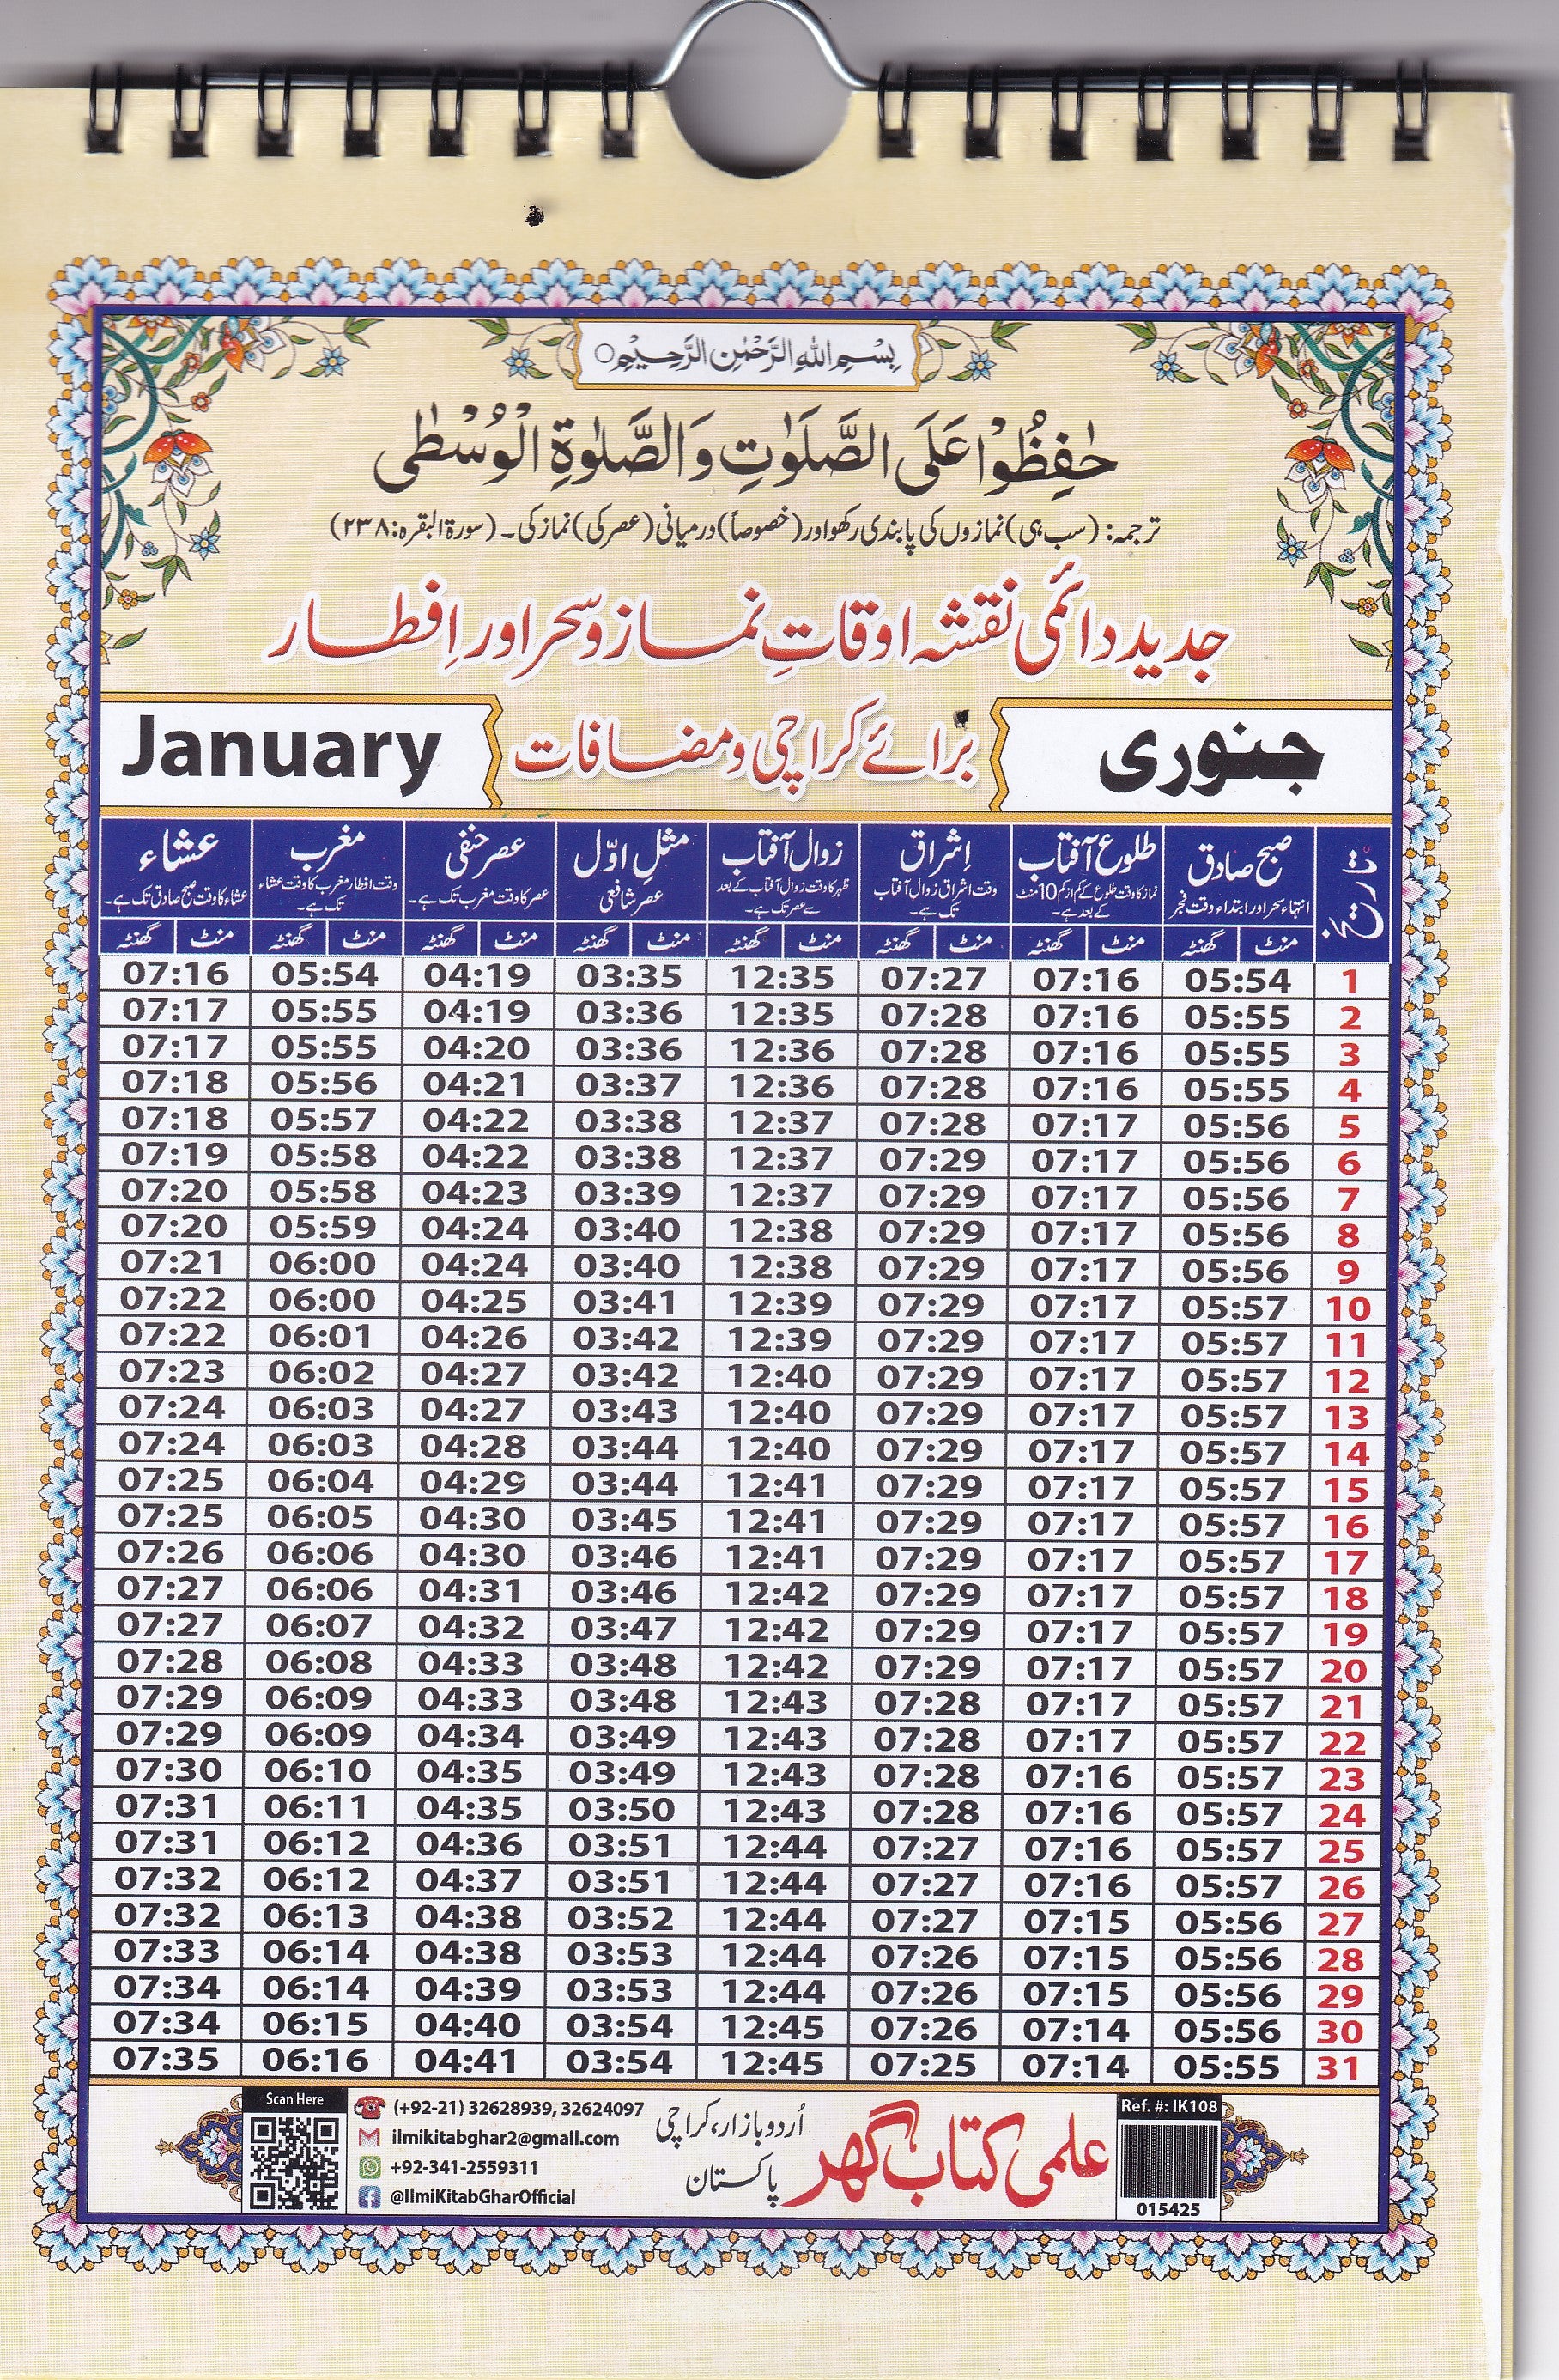 بِسْمِ اللهِ الرَّحْمٰنِ الرَّحِيْمِ
حٰفِظُوْا عَلَى الصَّلَوٰتِ وَالصَّلٰوةِ الْوُسْطٰى
ترجمہ: (سب ہی) نمازوں کی پابندی رکھو اور (خصوصاً) درمیانی (عصر کی) نماز کی۔ (سورۃ البقرہ: ۲۳۸)
جدید دائمی نقشہ اوقاتِ نماز و سحر اور اِفطار
جنوری برائے کراچی و مضافات January
تاریخ صبح صادق طلوع آفتاب اِشراق زوال آفتاب مثلِ اوّل عصر حنفی مغرب عشاء
انتہاء سحر اور ابتداء وقت فجر نماز کا وقت طلوع کے کم از کم 10 منٹ کے بعد ہے۔ وقت اشراق زوال آفتاب تک ہے۔ ظہر کا وقت زوال آفتاب کے بعد سے عصر تک ہے۔ عصر شافعی عصر کا وقت مغرب تک ہے۔ وقت افطار مغرب کا وقت عشاء تک ہے۔ عشاء کا وقت صبح صادق تک ہے۔
منٹ گھنٹہ منٹ گھنٹہ منٹ گھنٹہ منٹ گھنٹہ منٹ گھنٹہ منٹ گھنٹہ منٹ گھنٹہ منٹ گھنٹہ
1 05:54 07:16 07:27 12:35 03:35 04:19 05:54 07:16
2 05:55 07:16 07:28 12:35 03:36 04:19 05:55 07:17
3 05:55 07:16 07:28 12:36 03:36 04:20 05:55 07:17
4 05:55 07:16 07:28 12:36 03:37 04:21 05:56 07:18
5 05:56 07:17 07:28 12:37 03:38 04:22 05:57 07:18
6 05:56 07:17 07:29 12:37 03:38 04:22 05:58 07:19
7 05:56 07:17 07:29 12:37 03:39 04:23 05:58 07:20
8 05:56 07:17 07:29 12:38 03:40 04:24 05:59 07:20
9 05:56 07:17 07:29 12:38 03:40 04:24 06:00 07:21
10 05:57 07:17 07:29 12:39 03:41 04:25 06:00 07:22
11 05:57 07:17 07:29 12:39 03:42 04:26 06:01 07:22
12 05:57 07:17 07:29 12:40 03:42 04:27 06:02 07:23
13 05:57 07:17 07:29 12:40 03:43 04:27 06:03 07:24
14 05:57 07:17 07:29 12:40 03:44 04:28 06:03 07:24
15 05:57 07:17 07:29 12:41 03:44 04:29 06:04 07:25
16 05:57 07:17 07:29 12:41 03:45 04:30 06:05 07:25
17 05:57 07:17 07:29 12:41 03:46 04:30 06:06 07:26
18 05:57 07:17 07:29 12:42 03:46 04:31 06:06 07:27
19 05:57 07:17 07:29 12:42 03:47 04:32 06:07 07:27
20 05:57 07:17 07:29 12:42 03:48 04:33 06:08 07:28
21 05:57 07:17 07:28 12:43 03:48 04:33 06:09 07:29
22 05:57 07:17 07:28 12:43 03:49 04:34 06:09 07:29
23 05:57 07:16 07:28 12:43 03:49 04:35 06:10 07:30
24 05:57 07:16 07:28 12:43 03:50 04:35 06:11 07:31
25 05:57 07:16 07:27 12:44 03:51 04:36 06:12 07:31
26 05:57 07:16 07:27 12:44 03:51 04:37 06:12 07:32
27 05:56 07:15 07:27 12:44 03:52 04:38 06:13 07:32
28 05:56 07:15 07:26 12:44 03:53 04:38 06:14 07:33
29 05:56 07:15 07:26 12:44 03:53 04:39 06:14 07:34
30 05:56 07:14 07:26 12:45 03:54 04:40 06:15 07:34
31 05:55 07:14 07:25 12:45 03:54 04:41 06:16 07:35
Ref. #: IK108
015425
علمی کتاب گھر
اُردو بازار، کراچی
پاکستان
(+92-21) 32628939, 32624097
ilmikitabghar2@gmail.com
+92-341-2559311
@IlmiKitabGharOfficial
Scan Here